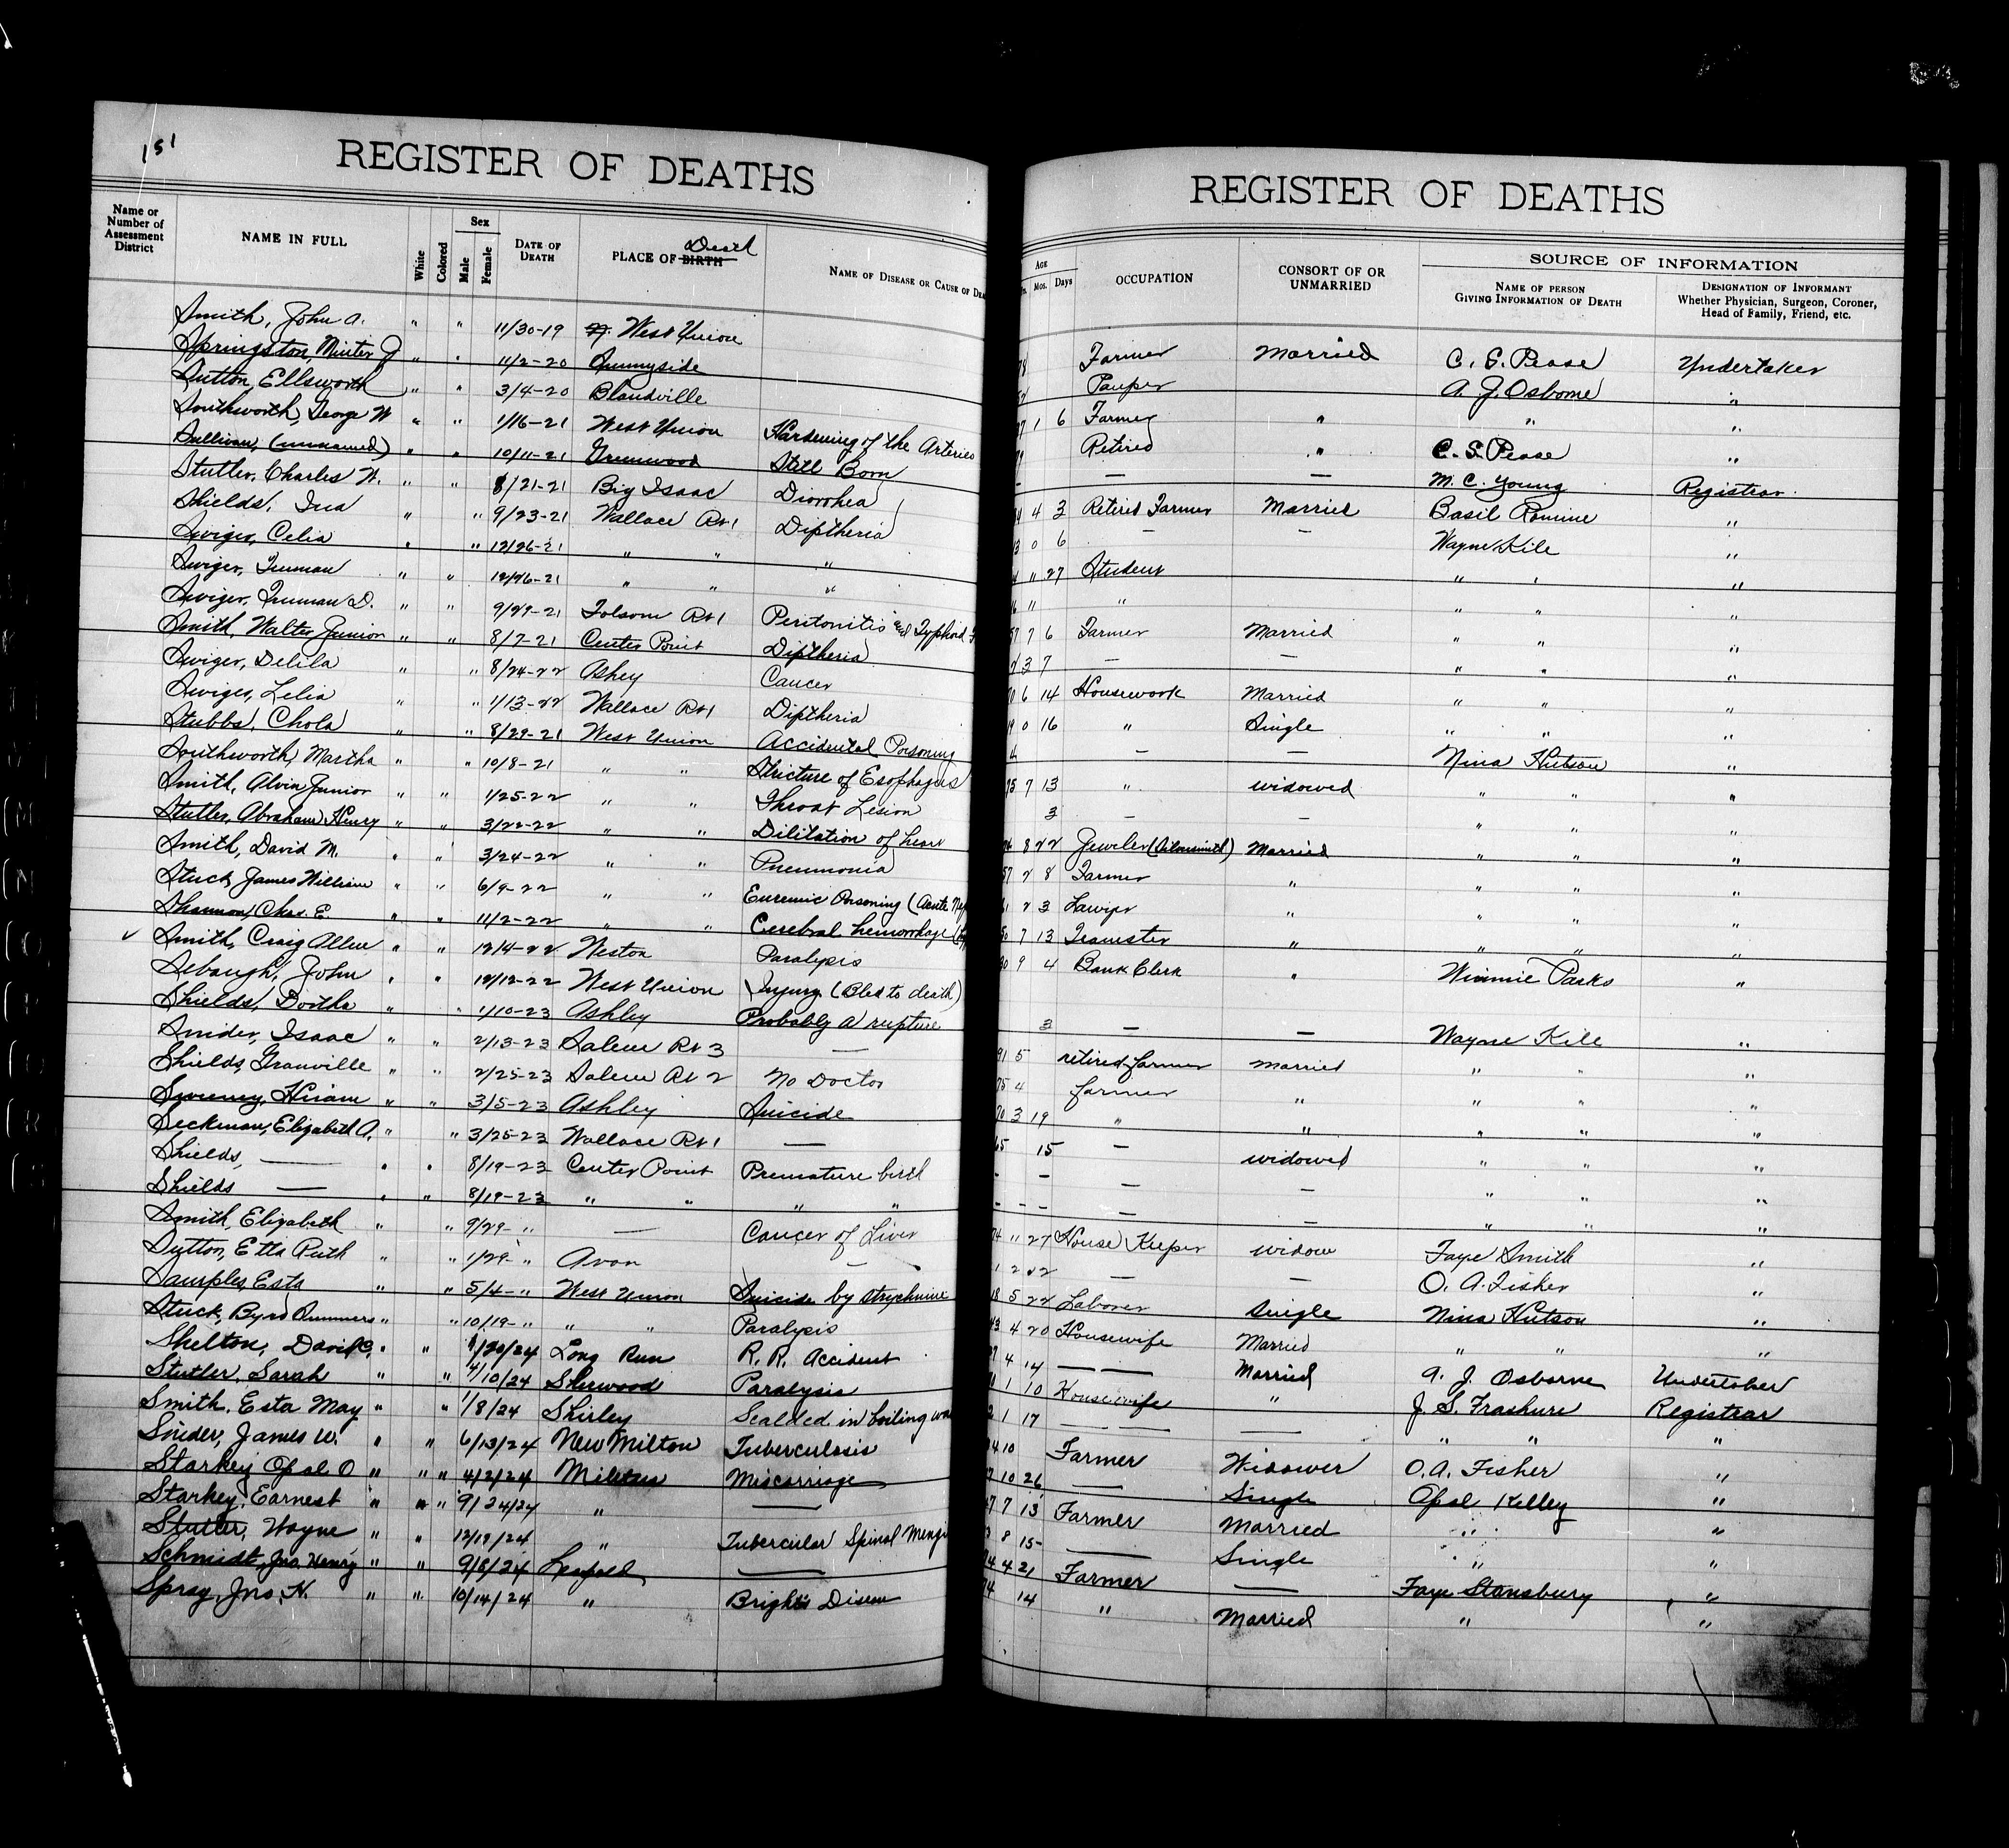 151
REGISTER OF DEATHS
Name or Number of Assessment District
NAME IN FULL
White
Colored
Sex
Male
Female
DATE OF DEATH
PLACE OF BIRTH Death
NAME OF DISEASE OR CAUSE OF DEA
Smith, John A. " " 11/30-19 West Union
Springston, Minter J " " 11/2-20 Sunnyside
Sutton, Ellsworth " " 3/4-20 Blandville
Southworth, George W " " 1/16-21 West Union Hardening of the Arteries
Sullivan, (unnamed) " " 10/11-21 Greenwood Still Born
Stutler, Charles W. " " 8/21-21 Big Isaac Diorrhea
Shields, Ina " " 9/23-21 Wallace Rt 1 Diptheria
Swiger, Celia " " 12/26-21 " " "
Swiger, Truman " " 12/26-21 " " "
Swiger, Truman D. " " 9/29-21 Folsom Rt 1 Peritonitis and Typhoid
Smith, Walter Junior " " 8/7-21 Center Point Diptheria
Swiger, Delila " " 8/24-22 Ashey Cancer
Swiger, Lelia " " 1/13-22 Wallace Rt 1 Diptheria
Stubbs, Chola " " 8/29-21 West Union Accidental Poisoning
Southworth, Martha " " 10/8-21 " " Stricture of Esophagus
Smith, Alvin Junior " " 1/25-22 " " Throat Lesion
Stutler, Abraham Henry " " 3/22-22 " " Dilitation of heart
Smith, David M. " " 3/24-22 " " Pneumonia
Stuck, James William " " 6/9-22 " " Euremic Poisoning (Acute Nep
Shannon, Chas. E. " " 11/2-22 " " Cerebral hemorrhage
✓ Smith, Craig Allen " " 12/4-22 Weston Paralysis
Sebaugh, John " " 12/12-22 West Union Injury (Bled to death)
Shields, Dortha " " 1/10-23 Ashley Probably a rupture
Snider, Isaac " " 2/13-23 Salem Rt 3 —
Shields, Granville " " 2/25-23 Salem Rt 2 No Doctor
Sweeney, Hiram " " 3/5-23 Ashley Suicide
Seckman, Elizabeth A. " " 3/25-23 Wallace Rt 1 —
Shields, — " " 8/19-23 Center Point Premature birth
Shields — " " 8/19-23 " " " "
Smith, Elizabeth " " 9/29- " — Cancer of Liver
Sutton, Etta Ruth " " 1/29- " Avon —
Samples, Esta " " 5/4- " West Union Suicide by strychnine
Stuck, Byrd Summers " " 10/19- " " " Paralysis
Shelton, David C. " " 1/20/24 Long Run R. R. Accident
Stutler, Sarah " " 4/10/24 Sherwood Paralysis
Smith, Esta May " " 1/8/24 Shirley Scalded in boiling wa
Snider, James W. " " 6/13/24 New Milton Tuberculosis
Starkey Opal O " " " 4/2/24 Miletus Miscarriage
Starkey, Earnest " " " 9/24/24 " —
Stutler, Wayne " " 12/19/24 " Tubercular Spinal Mengi
Schmidt, Jno Henry " " 9/8/24 Leopold —
Spray, Jno. H. " " 10/14/24 " Brights Disease
REGISTER OF DEATHS
AGE
Mos.
Days
OCCUPATION
CONSORT OF OR UNMARRIED
SOURCE OF INFORMATION
NAME OF PERSON GIVING INFORMATION OF DEATH
DESIGNATION OF INFORMANT
Whether Physician, Surgeon, Coroner, Head of Family, Friend, etc.
Farmer Married C. S. Pease Undertaker
Pauper A. J. Osborne "
1 6 Farmer " " "
Retired " C. S. Pease "
— — M. C. Young Registrar.
4 3 Retired Farmer Married Basil Romine "
0 6 — — Wayne Kile "
" 27 Student " " "
" " " " "
7 6 Farmer Married " " "
3 7 — — " " "
6 14 Housework Married " " "
0 16 " Single " " "
— — Nina Hutson "
7 13 " widowed " " "
3 — — " " "
8 22 Jeweler (Silversmith) Married " " "
2 8 Farmer " " " "
2 3 Lawyer " " " "
7 13 Teamster " " " "
9 4 Bank Clerk " Winnie Parks "
3 — — Wayne Kile "
5 retired farmer married " " "
4 farmer " " " "
3 19 " " " " "
15 — widowed " " "
— — — " " "
— — — " " "
" 27 House Keeper widow Faye Smith "
1 2 22 — — O. A. Fisher "
18 5 22 Laborer Single Nina Hutson "
43 4 20 Housewife Married " " "
4 14 — — Married A. J. Osborne Undertaker
1 10 Housewife " J. S. Frashure Registrar
1 17 — — — " " "
10 Farmer Widower O. A. Fisher "
10 26 — Single Opal Kelley "
7 13 Farmer Married " "
8 15 — Single " "
4 21 Farmer — Faye Stansbury "
14 " Married " "